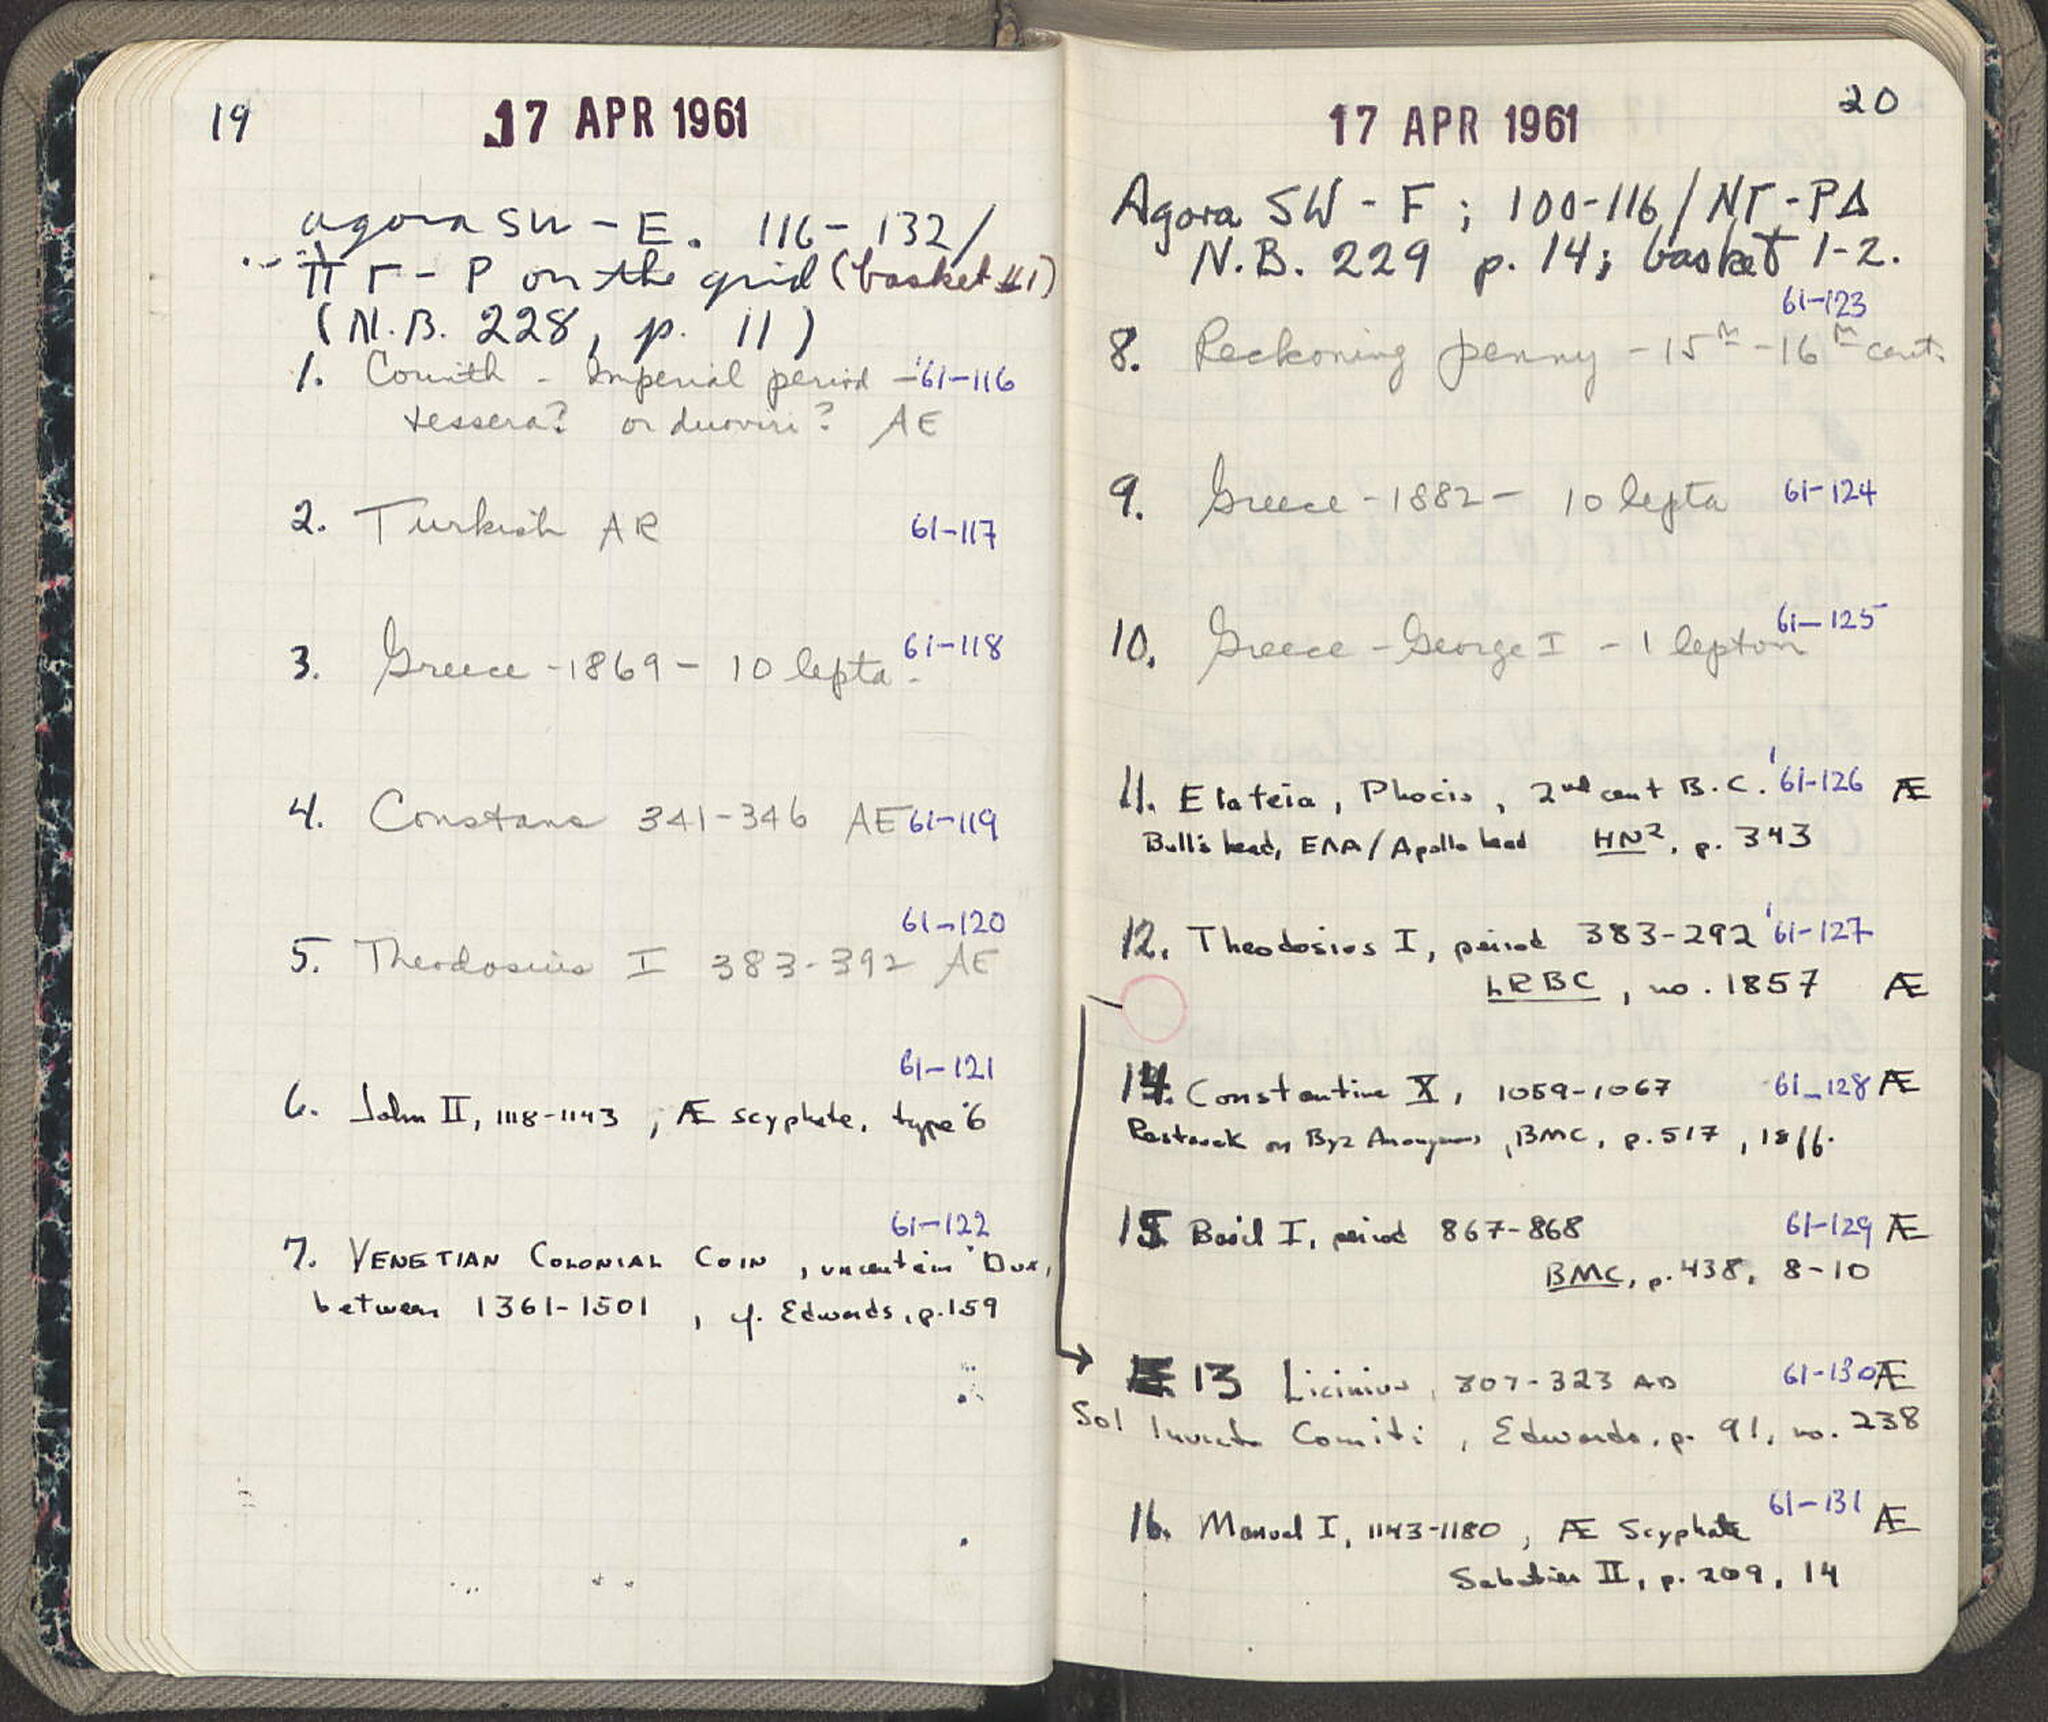 19
17 APR 1961
Agora SW - E. 116 - 132/
ΠΓ - Ρ on the grid (basket #1)
(N.B. 228, p. 11)
1. Corinth - Imperial period - 61-116
tessera? or duoviri? AE
2. Turkish AR 61-117
3. Greece - 1869 - 10 lepta. 61-118
4. Constans 341-346 AE 61-119
61-120
5. Theodosius I 383-392 AE
61-121
6. John II, 1118-1143, Æ scyphate, type 6
61-122
7. VENETIAN COLONIAL COIN, uncertain Dux,
between 1361-1501, cf. Edwards, p. 159
20
17 APR 1961
Agora SW - F; 100-116/ΝΓ-ΡΔ
N.B. 229 p. 14; basket 1-2.
61-123
8. Reckoning penny - 15th - 16th cent.
9. Greece - 1882 - 10 lepta 61-124
10. Greece - George I - 1 lepton 61-125
11. Elateia, Phocis, 2nd cent B.C. '61-126 Æ
Bull's head, ΕΛΑ/Apollo head HN², p. 343
12. Theodosius I, period 383-292 '61-127
LRBC, no. 1857 Æ
14. Constantine X, 1059-1067 61-128 Æ
Restruck on Byz Anonymous, BMC, p. 517, 18ff.
15 Basil I, period 867-868 61-129 Æ
BMC, p. 438, 8-10
13 Licinius, 307-323 AD 61-130 Æ
Sol Invicto Comiti, Edwards, p. 91, no. 238
16. Manuel I, 1143-1180, Æ Scyphate 61-131 Æ
Sabatier II, p. 209, 14